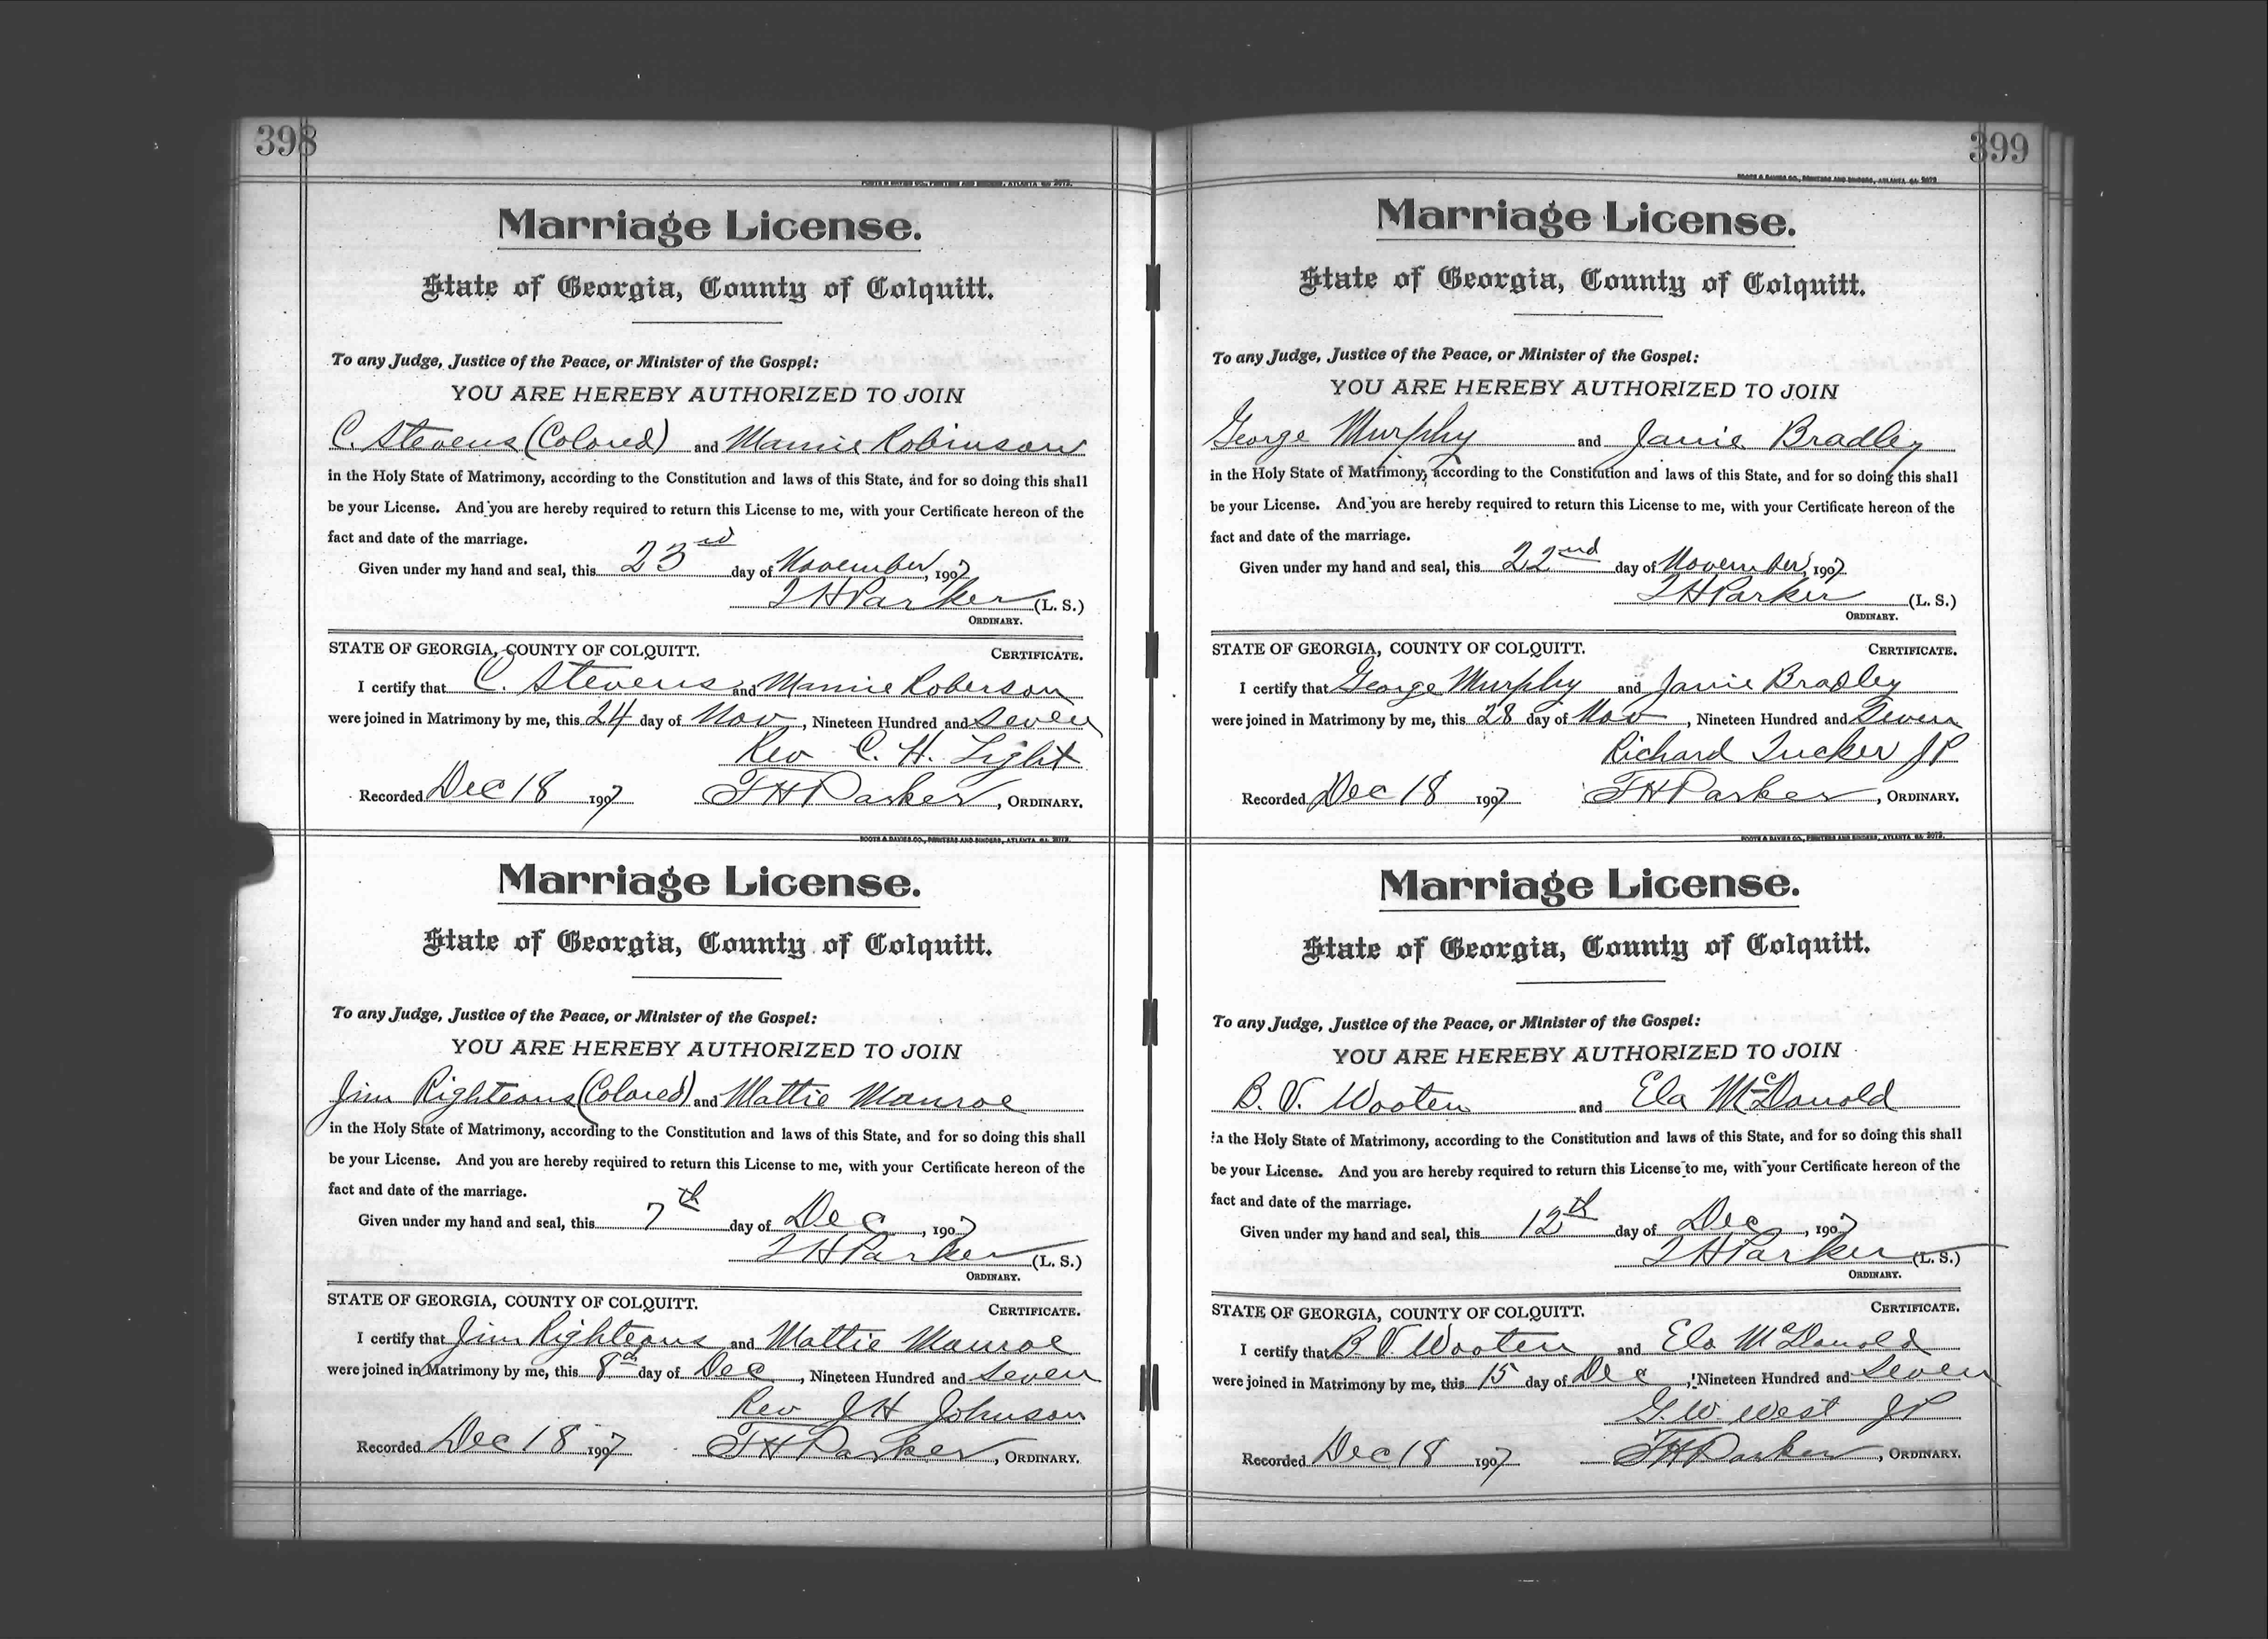 398
FOOTE & DAVIES CO., PRINTERS AND BINDERS, ATLANTA, GA. 2072.
Marriage License.
State of Georgia, County of Colquitt.
To any Judge, Justice of the Peace, or Minister of the Gospel:
YOU ARE HEREBY AUTHORIZED TO JOIN
C. Stevens (Colored) and Mamie Robinson
in the Holy State of Matrimony, according to the Constitution and laws of this State, and for so doing this shall
be your License. And you are hereby required to return this License to me, with your Certificate hereon of the
fact and date of the marriage.
Given under my hand and seal, this 23rd day of November, 1907
THParker (L. S.)
ORDINARY.
STATE OF GEORGIA, COUNTY OF COLQUITT.
CERTIFICATE.
I certify that C. Stevens and Mamie Roberson
were joined in Matrimony by me, this 24 day of Nov, Nineteen Hundred and Seven
Rev C. H. Light
Recorded Dec 18 1907 THParker, ORDINARY.
FOOTE & DAVIES CO., PRINTERS AND BINDERS, ATLANTA, GA. 2072.
Marriage License.
State of Georgia, County of Colquitt.
To any Judge, Justice of the Peace, or Minister of the Gospel:
YOU ARE HEREBY AUTHORIZED TO JOIN
Jim Righteous (Colored) and Mattie Manroe
in the Holy State of Matrimony, according to the Constitution and laws of this State, and for so doing this shall
be your License. And you are hereby required to return this License to me, with your Certificate hereon of the
fact and date of the marriage.
Given under my hand and seal, this 7th day of Dec, 1907
THParker (L. S.)
ORDINARY.
STATE OF GEORGIA, COUNTY OF COLQUITT.
CERTIFICATE.
I certify that Jim Righteous and Mattie Manroe
were joined in Matrimony by me, this 8th day of Dec, Nineteen Hundred and Seven
Rev J H Johnson
Recorded Dec 18 1907 THParker, ORDINARY.
399
FOOTE & DAVIES CO., PRINTERS AND BINDERS, ATLANTA, GA. 2072
Marriage License.
State of Georgia, County of Colquitt.
To any Judge, Justice of the Peace, or Minister of the Gospel:
YOU ARE HEREBY AUTHORIZED TO JOIN
George Murphy and Janie Bradley
in the Holy State of Matrimony, according to the Constitution and laws of this State, and for so doing this shall
be your License. And you are hereby required to return this License to me, with your Certificate hereon of the
fact and date of the marriage.
Given under my hand and seal, this 22nd day of November, 1907
THParker (L. S.)
ORDINARY.
STATE OF GEORGIA, COUNTY OF COLQUITT.
CERTIFICATE.
I certify that George Murphy and Janie Bradley
were joined in Matrimony by me, this 28 day of Nov, Nineteen Hundred and Seven
Richard Tucker JP
Recorded Dec 18 1907 THParker, ORDINARY.
FOOTE & DAVIES CO., PRINTERS AND BINDERS, ATLANTA, GA. 2072.
Marriage License.
State of Georgia, County of Colquitt.
To any Judge, Justice of the Peace, or Minister of the Gospel:
YOU ARE HEREBY AUTHORIZED TO JOIN
B. V. Wooten and Ela McDonald
in the Holy State of Matrimony, according to the Constitution and laws of this State, and for so doing this shall
be your License. And you are hereby required to return this License to me, with your Certificate hereon of the
fact and date of the marriage.
Given under my hand and seal, this 12th day of Dec, 1907
THParker (L. S.)
ORDINARY.
STATE OF GEORGIA, COUNTY OF COLQUITT.
CERTIFICATE.
I certify that B V Wooten and Ela McDonald
were joined in Matrimony by me, this 15 day of Dec, Nineteen Hundred and Seven
G. W. West JP
Recorded Dec 18 1907 THParker, ORDINARY.